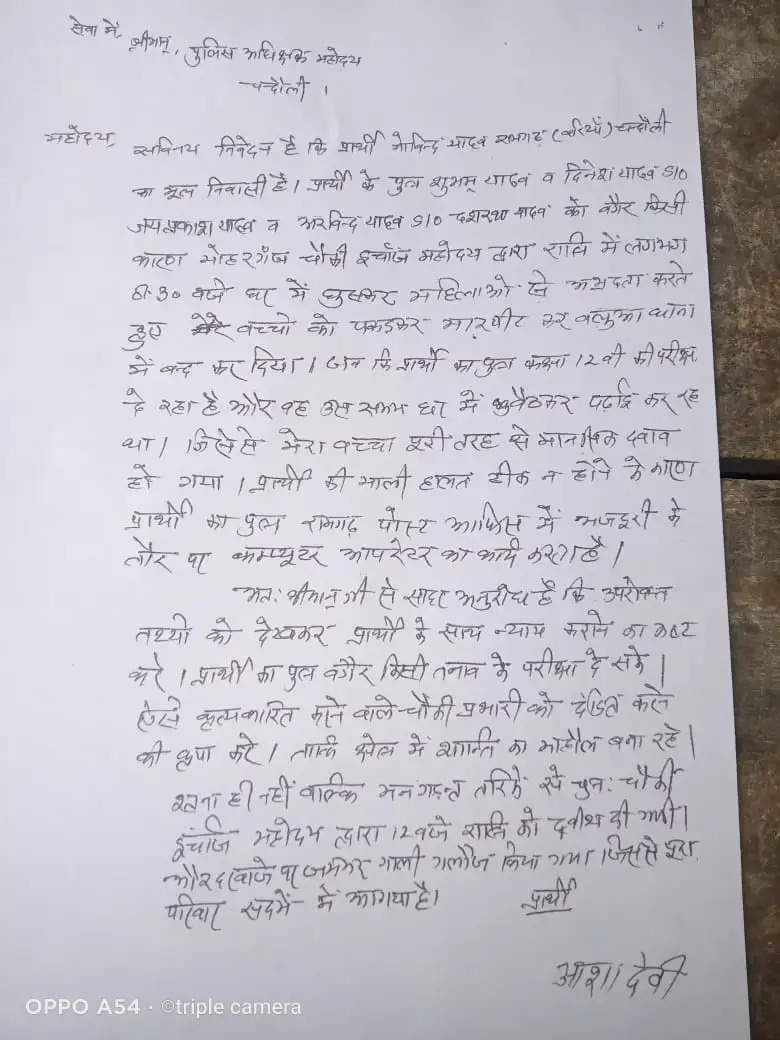 सेवा में,
श्रीमान्, पुलिस अधिक्षक महोदय
चन्दौली ।
महोदय,
सविनय निवेदन है कि प्रार्थी गोविन्द यादव रामगढ़ (बरियॉ) चन्दौली
का मूल निवासी है। प्रार्थी के पुत्र शुभम् यादव व दिनेश यादव S/O
जयप्रकाश यादव व अरविन्द यादव S/O दशरथ यादव को बगैर किसी
कारण मोहरगंज चौकी इंचार्ज महोदय द्वारा रात्रि में लगभग
बजे घर में घुसकर महिलाओ से अभद्रता करते
हुए मेरे बच्चो को पकड़कर मारपीट कर बलुआ थाना
में बन्द कर दिया। जब कि प्रार्थी का पुत्र कक्षा 12वी की परीक्षा
दे रहा है और वह उस समय घर में बैठकर पढ़ाई कर रहा
था। जिससे मेरा बच्चा पूरी तरह से मानसिक दबाव
हो गया। प्रार्थी की माली हालत ठीक न होने के कारण
प्रार्थी का पुत्र रामगढ़ पोस्ट आफिस में मजदूरी के
तौर पर कम्प्यूटर आपरेटर का कार्य करता है।
अत: श्रीमान् जी से सादर अनुरोध है कि उपरोक्त
तथ्यो को देखकर प्रार्थी के साथ न्याय कराने का कष्ट
करे। प्रार्थी का पुत्र बगैर किसी तनाव के परीक्षा दे सके।
ऐसे कृत्यकारित करने वाले चौकी प्रभारी को दंडित करने
की कृपा करे। ताकि क्षेत्र में शान्ति का माहौल बना रहे।
इतना ही नहीं बल्कि मनगढ़न्त तरिके से पुन: चौकी
इंचार्ज महोदय द्वारा 12 बजे रात्रि को दबीश दी गयी।
और दरवाजे पर जमकर गाली गलौज किया गया जिससे पूरा
परिवार सदमें में आ गया है।
प्रार्थी
आशा देवी
OPPO A54 · ©triple camera